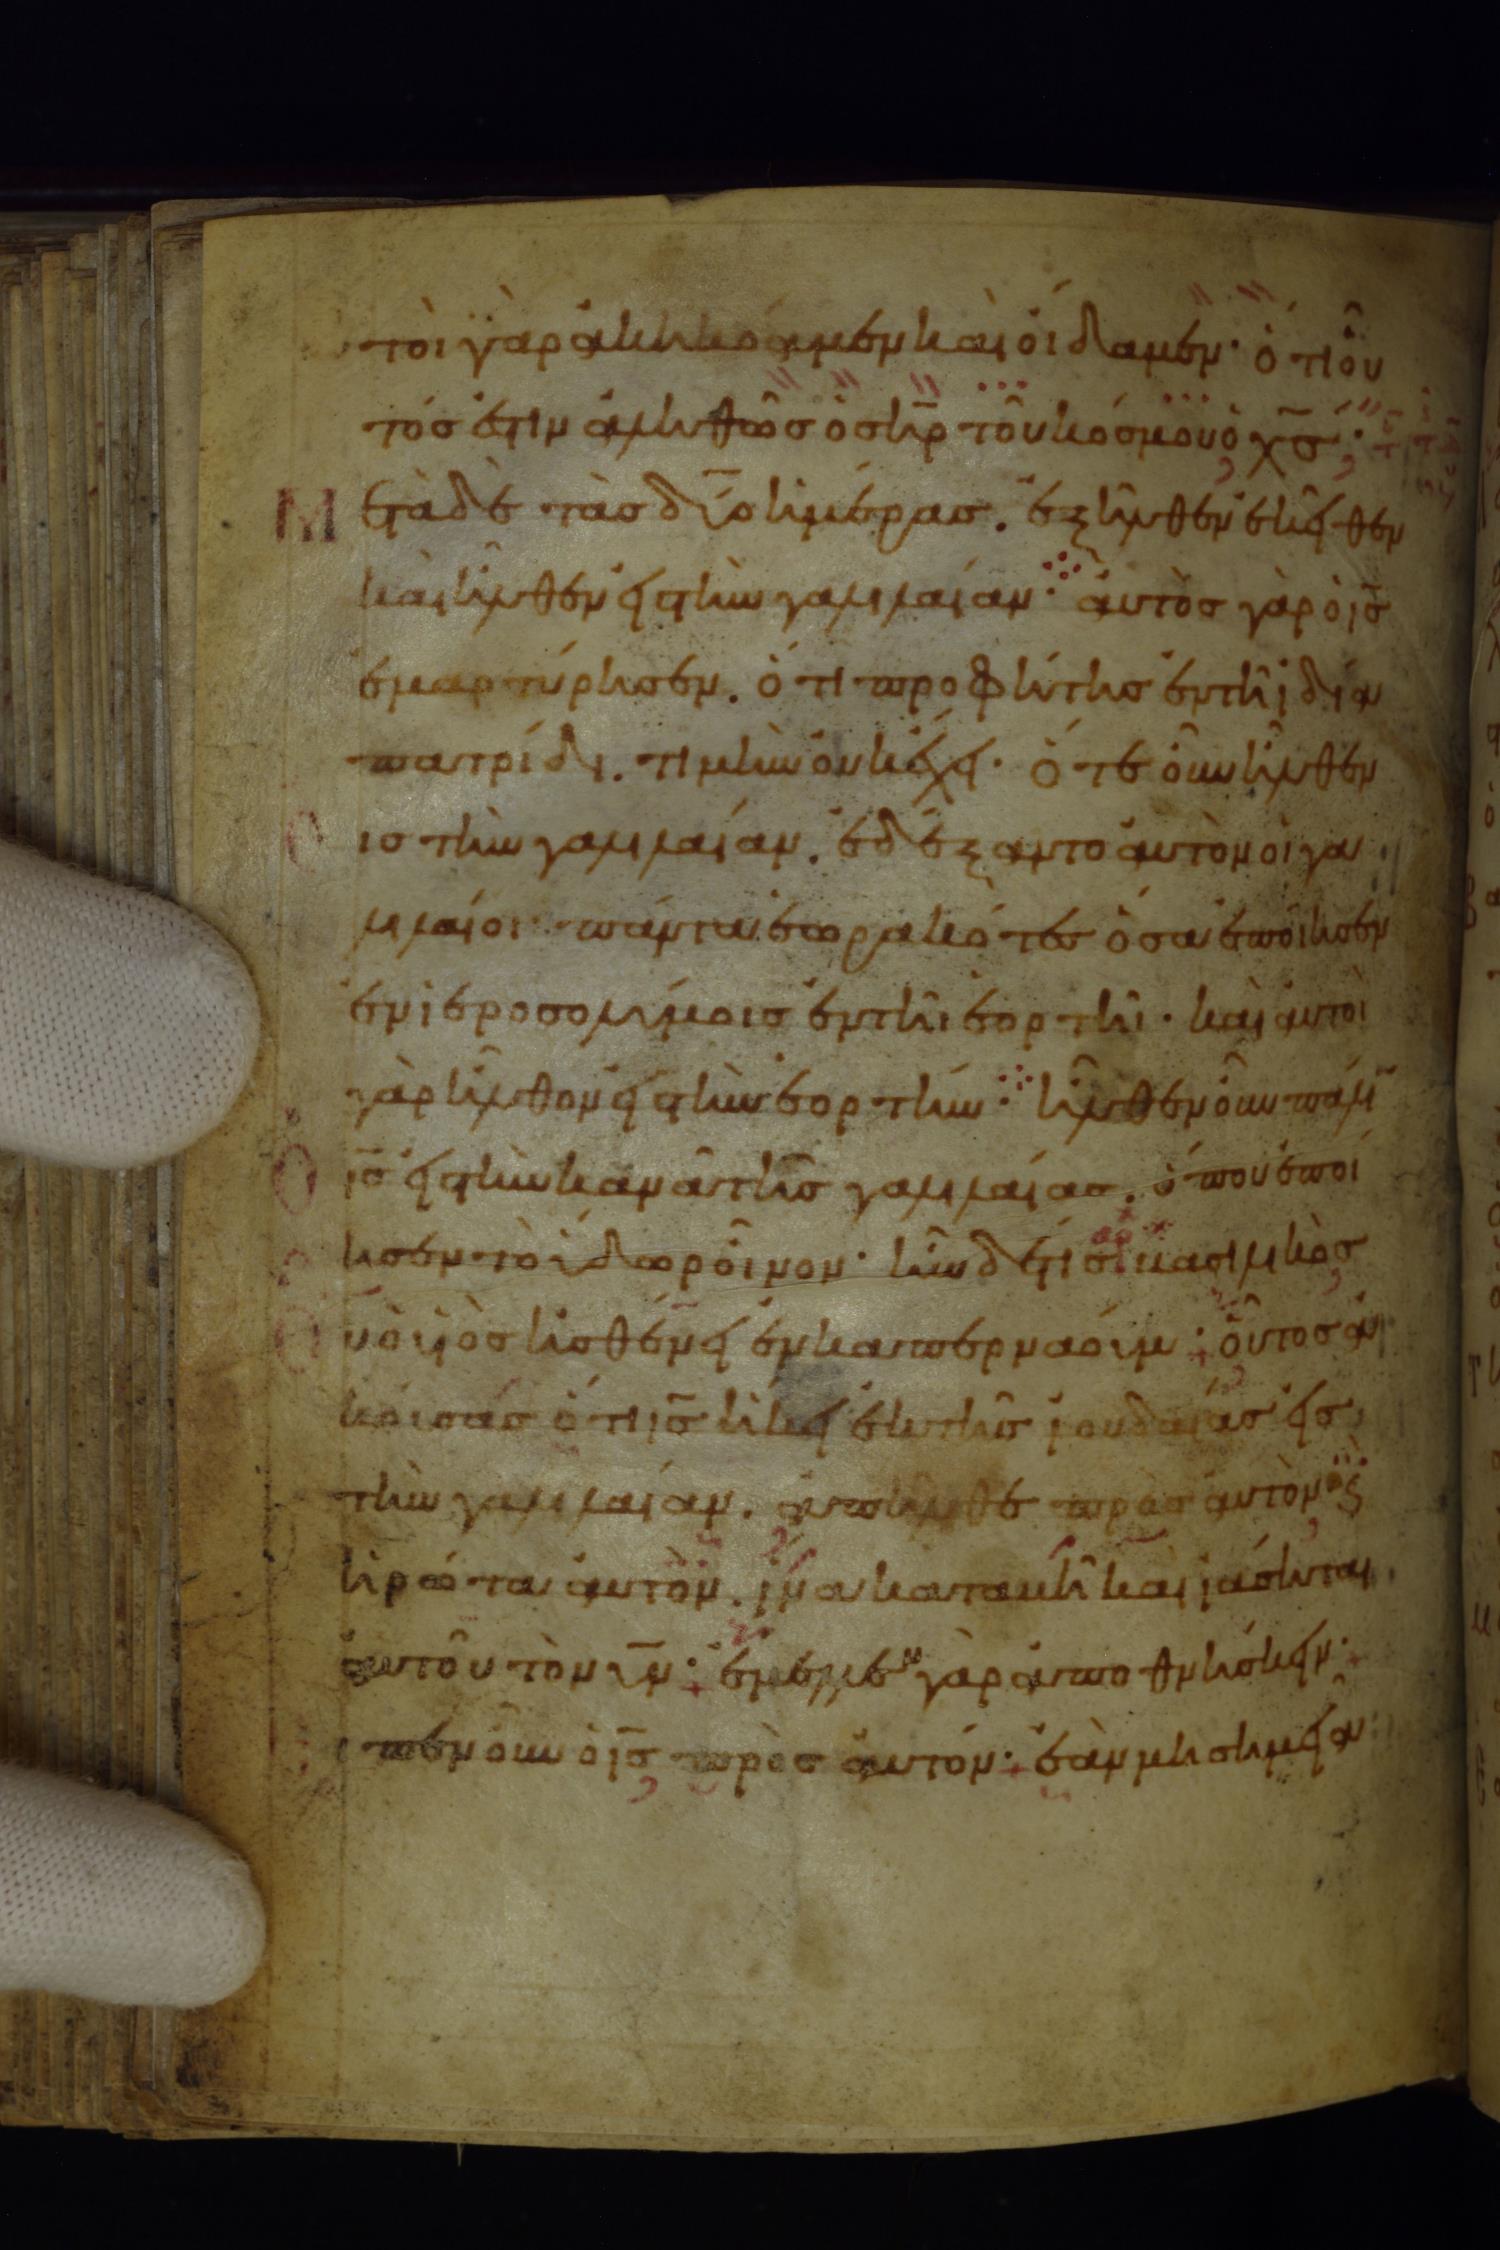 τὸι γὰρ ἀκηκόαμεν καὶ οἴδαμεν· ὅτι οὗ
τός ἐστιν ἀληθῶς ὁ σ̅η̅ρ τοῦ κόσμου ὁ χ̅ς̅·
Μετὰ δὲ τὰς δύο ἡμέρας. ἐξῆλθεν ἐκεῖθεν
καὶ ἦλθεν εἰς τὴν γαλιλαίαν· ἀυτὸς γὰρ ὁ ι̅ς̅
ἐμαρτύρησεν. ὅτι προφήτης ἐν τῆ ἰδία
πατρίδι. τιμὴν ὀυκ ἔχει· Ὅτε οὖν ἦλθεν
εις τὴν γαλιλαίαν. ἐδέξαντο ἀυτὸν ὁι γα
λιλαίοι· πάντα ἑωρακότες ὅσα ἐποίησεν
ἐν ἱεροσολύμοις ἐν τῆι ἑορτῆι· καὶ ἀυτοὶ
γὰρ ἦλθον εἰς τὴν ἑορτήν· ἦλθεν οὖν πάλιν
ὁ ι̅ς̅ εἰς τὴν κανᾶ τῆς γαλιλαίας. ὅπου ἐποί
ησεν τὸ ὕδωρ οἶνον· ἦν δέ τις βασιλικὸς
οὗ ὁ ὑιὸς ἠσθένει ἐν καπερναούμ· οὗτος ἀ
κούσας ὅτι ι̅ς̅ ἥκει ἐκ τῆς ἰουδαίας εἰς
τὴν γαλιλαίαν. ἀπῆλθε πρὸς ἀυτὸν καὶ
ἠρώτα ἀυτὸν. ἵνα καταβῆ καὶ ἰάσηται
ἀυτοῦ τὸν υ̅ν̅· ἔμελλεν γὰρ ἀποθνήσκειν·
εἶπεν οὖν ὁ ι̅ς̅ πρὸς ἀυτόν· ἐὰν μὴ σημεῖα